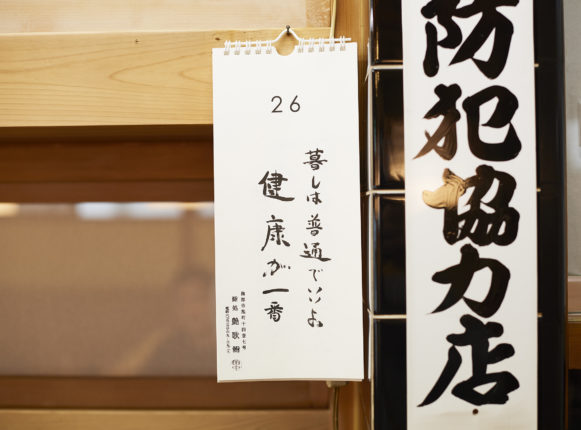 防犯協力店
26
暮しは普通でいいよ
健康が一番